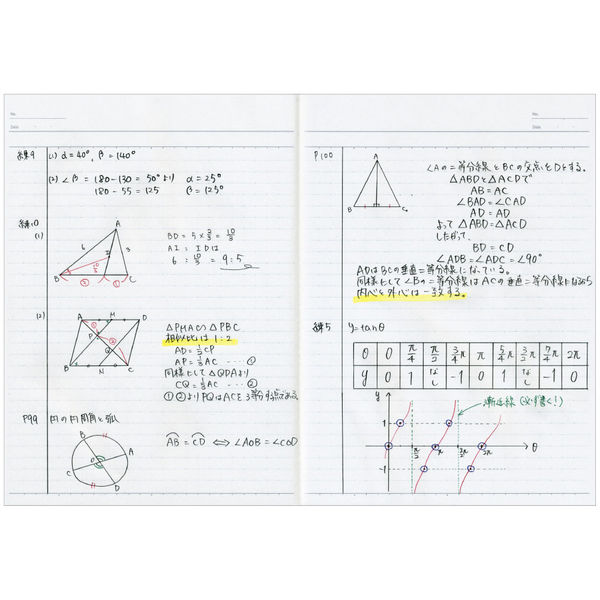 No.
Date
練9
(1) α=40°, β=140°
(2) ∠β = 180-130 = 50°より α=25°
180-55 = 125 β=125°
練10
(1)
A
6
3
I
10/3
B
D
C
②
①
BD = 5×2/3 = 10/3
AI : IDは
6 : 10/3 = 9:5
(2)
A
M
D
P
Q
B
N
C
相似比は 1:2
AD=1/2CP
AP=1/3AC ---- ①
同様にして△QDAより
CQ=1/3AC ---- ②
①②よりPQはACを3等分する点である
P99 円の円周角と弧
A
B
C
D
O
AB = CD ⇔ ∠AOB=∠COD
No.
Date
P100
A
B
C
∠Aの二等分線とBCの交点をDとする。
△ABDと△ACDで
AB=AC
∠BAD=∠CAD
AD=AD
よって △ABD=△ACD
したがって、
BD=CD
∠ADB=∠ADC=∠90°
ADはBCの垂直二等分線になっている。
同様にして∠Bの二等分線はACの垂直二等分線になるから
内心と外心は一致する。
練5 y=tanθ
θ 0 π/4 π/2 3/4π π 5/4π 3/2π 7/4π 2π
y 0 1 なし -1 0 1 なし -1 0
y
漸近線(必ず書く!)
1
-1
π/2
π
3/2π
2π
θ